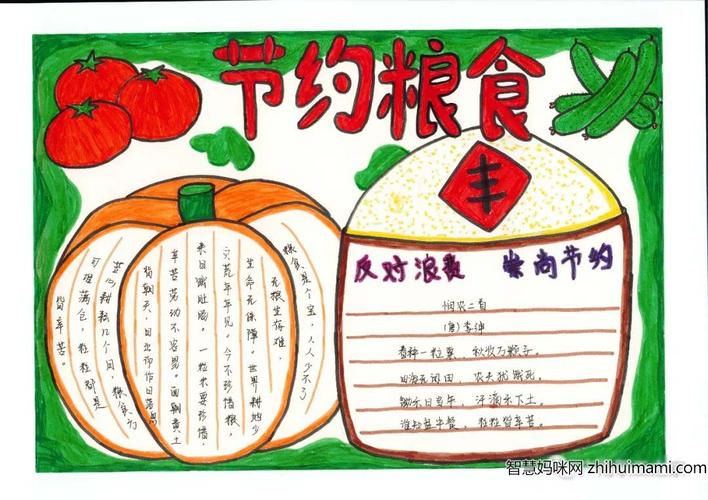 节约粮食
丰
粮食是个宝,人人少不了
无粮生存难,
生命无保障。世界耕地少
灾荒年年见,今不珍惜粮,
来日饿肚肠。一粒米要珍惜,
辛苦劳动不容易。面朝黄土
背朝天,日出而作日落息
苦心耕耘几个月,粮食方
可堆满仓,粒粒都是
皆辛苦。
反对浪费 崇尚节约
悯农二首
(唐)李绅
春种一粒粟,秋收万颗子。
四海无闲田,农夫犹饿死。
锄禾日当午,汗滴禾下土。
谁知盘中餐,粒粒皆辛苦。
智慧妈咪网 zhihuimami.com